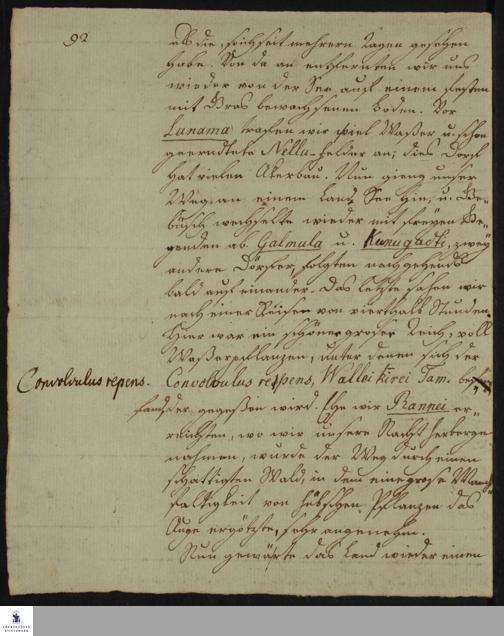 92
als die, so ich seit mehrern Tagen gesehen
habe. Von da an entfernten wir uns
wieder von der See auf einem festen
mit Gras bewachsenen Boden. Vor
Lunama trafen wir viel Waßer u. schon
geerndtete Nellu-Felder an; dies Dorf
hat vielen Akerbau. Nun gieng unser
Weg, an einem Land See hin, u. Ge-
büsch wechselte wieder mit freyen Ge-
genden ab. Galmula u. Kunugadti, zwey
andere Dörfer, folgten nachgehends
bald auf einander. Das letzte sahen wir
nach einer Reise von vierthalb Stunden.
Hier war ein schöner großer Teich, voll
Waßerpflanzen, unter denen sich der
Convolvulus repens.
Convolvulus repens, Wallei kirei Tam. be-
fand, der gegeßen wird. Ehe wir Rannei er-
reichten, wo wir unsere Nachtherberge
nahmen, wurde der Weg durch einen
schattigten Wald, in dem eine große Man-
faltigkeit von hübschen Pflanzen das
Auge ergötzte, sehr angenehm.
Nun gewährte das Land wieder einen
FRANCKESCHE
STIFTUNGEN